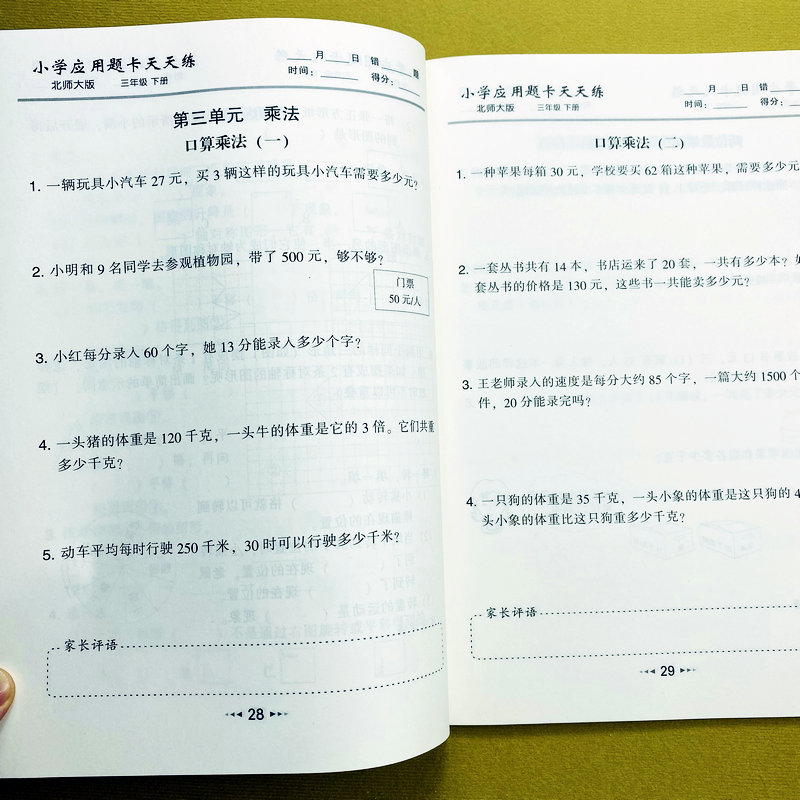 小学应用题卡天天练
北师大版 三年级 下册
月 日 错 题
时间: 得分:
第三单元 乘法
口算乘法（一）
1. 一辆玩具小汽车 27 元，买 3 辆这样的玩具小汽车需要多少元?
2. 小明和 9 名同学去参观植物园，带了 500 元，够不够?
门票
50 元/人
3. 小红每分录入 60 个字，她 13 分能录入多少个字?
4. 一头猪的体重是 120 千克，一头牛的体重是它的 3 倍。它们共重
多少千克?
5. 动车平均每时行驶 250 千米，30 时可以行驶多少千米?
家长评语
28
小学应用题卡天天练
北师大版 三年级 下册
月 日 错
时间: 得分:
口算乘法（二）
1. 一种苹果每箱 30 元，学校要买 62 箱这种苹果，需要多少元
2. 一套丛书共有 14 本，书店运来了 20 套，一共有多少本?
套丛书的价格是 130 元，这些书一共能卖多少元?
3. 王老师录入的速度是每分大约 85 个字，一篇大约 1500 个
件，20 分能录完吗?
4. 一只狗的体重是 35 千克，一头小象的体重是这只狗的 4
头小象的体重比这只狗重多少千克?
家长评语
29